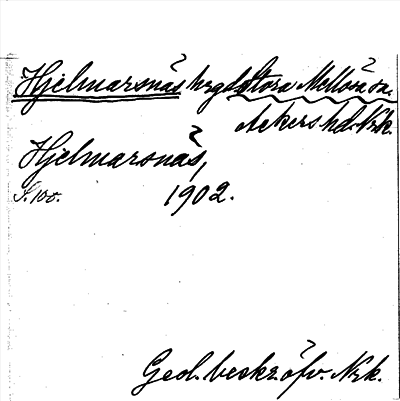 Hjelmarsnäs hrgd Stora Mellösa sn.
Askers hd. Nrk.
Hjelmarsnäs,
S. 108. 1902.
Geol. beskr. öfv. Nrk.